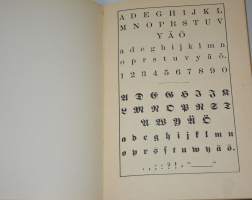 A D E G H I J K L
M N O P R S T U V
Y Ä Ö
a d e g h i j k l m n
o p r s t u v y ä ö.
1 2 3 4 5 6 7 8 9 0
A D E G H I J K
L M N O P R S T
U V Y Ä Ö
a d e g h i j k l m n
o p r s t u v y ä ö.